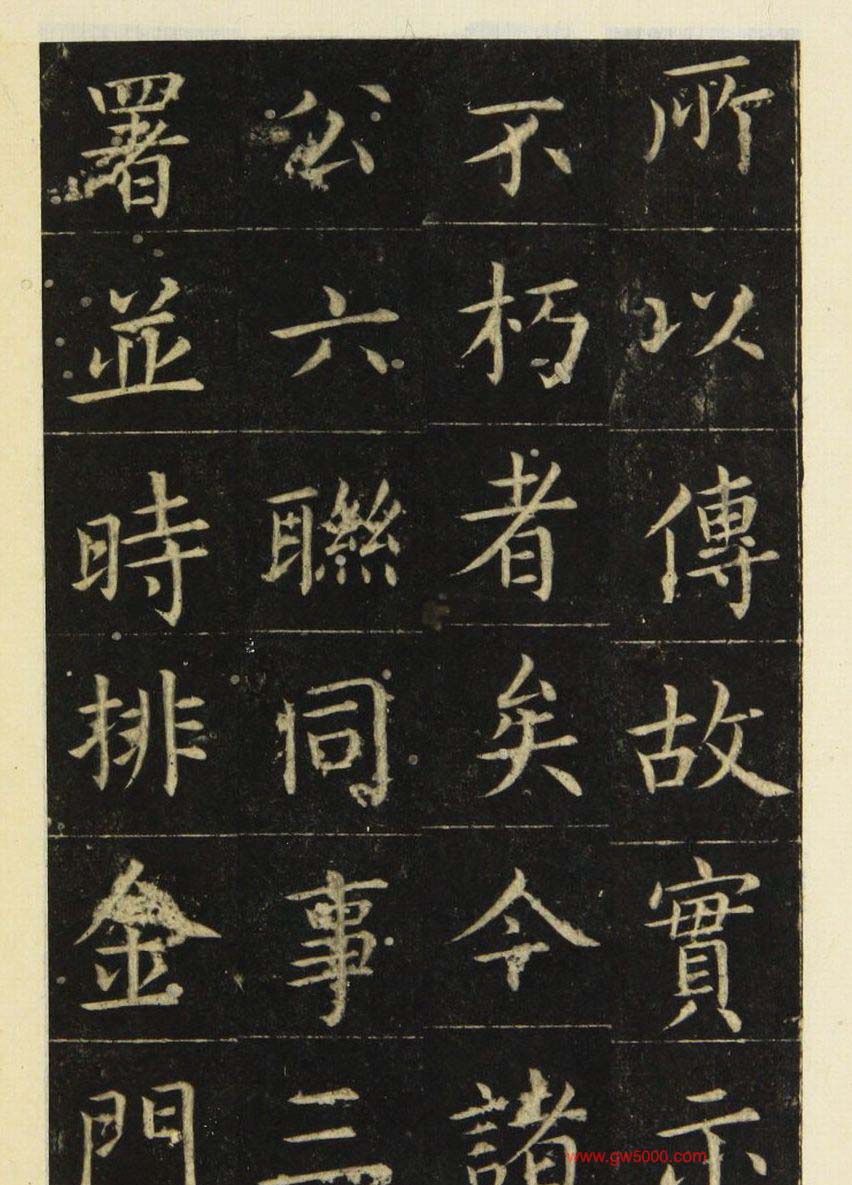 所以傳故實示
不朽者矣今諸
公六聯同事三
署並時排金門
www.gw5000.com